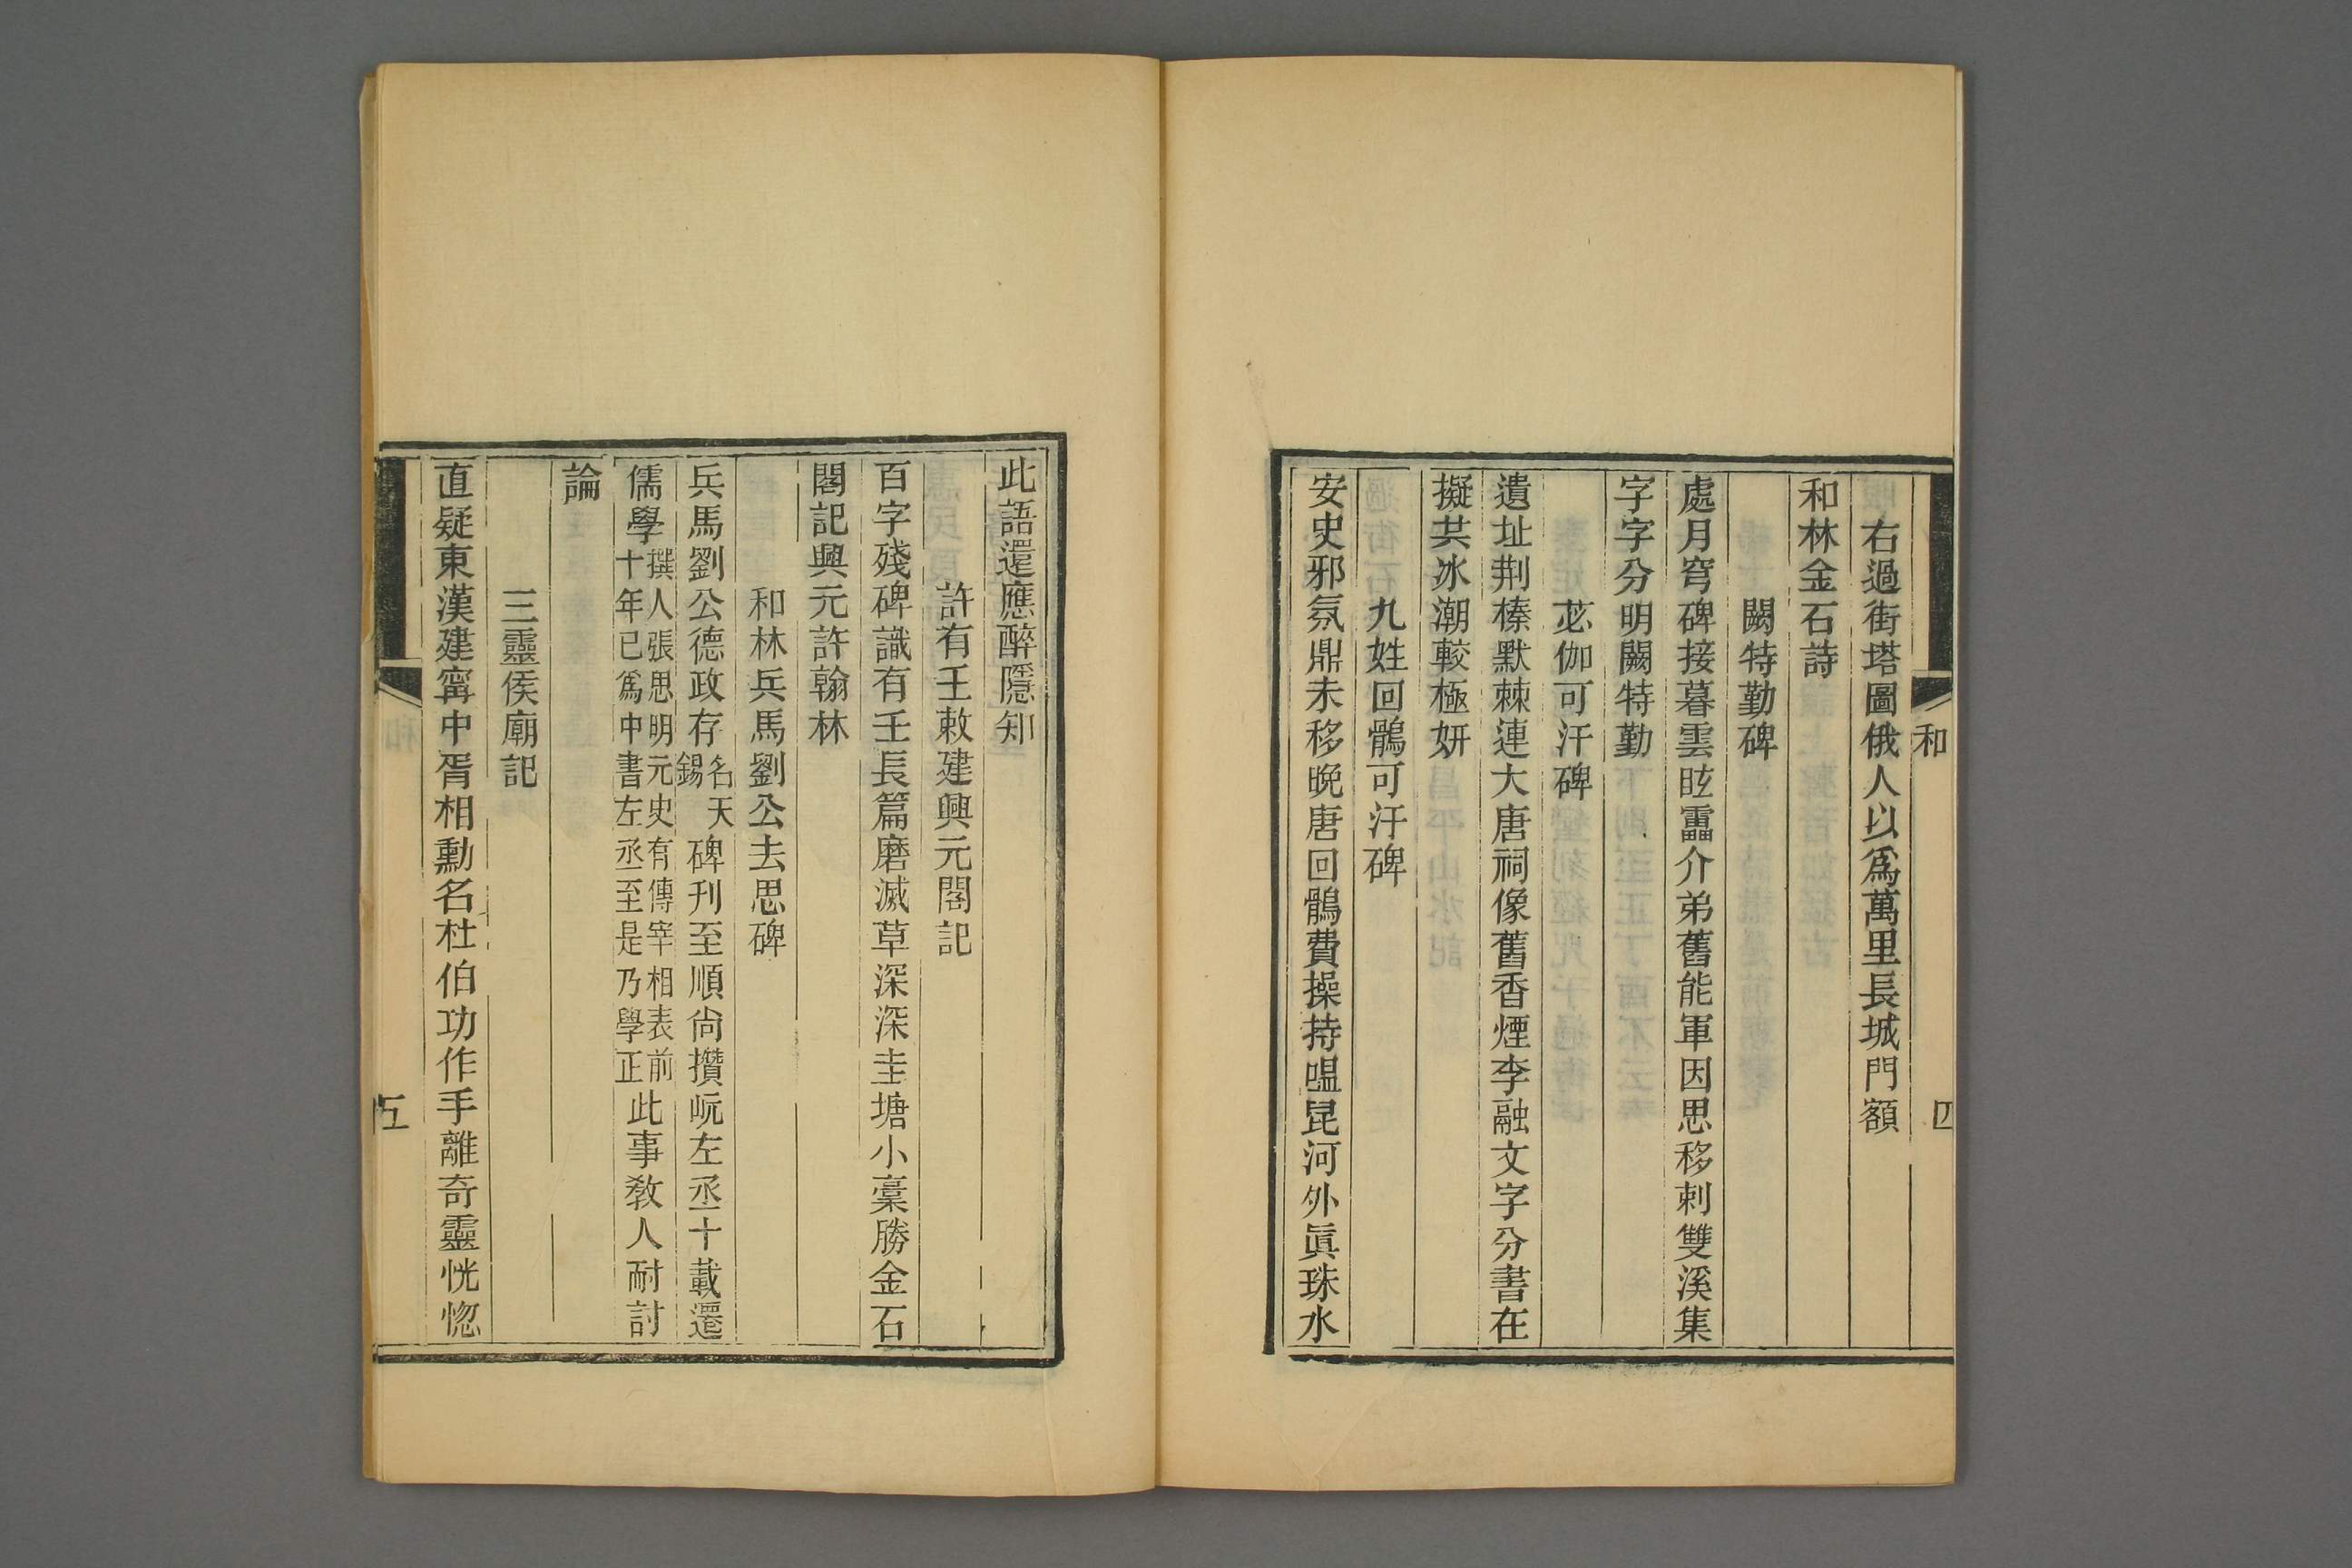 和
四
右過街塔圖俄人以爲萬里長城門額
和林金石詩
闕特勤碑
處月穹碑接暮雲眩靁介弟舊能軍因思移剌雙溪集
字字分明闕特勤
苾伽可汗碑
遺址荆榛默棘連大唐祠像舊香煙李融文字分書在
擬其冰潮較極妍
九姓回鶻可汗碑
安史邪氛鼎未移晚唐回鶻費操持嗢昆河外眞珠水
此語還應醉隱知
許有壬敕建興元閣記
百字殘碑識有壬長篇磨滅草深深圭塘小稾勝金石
閣記興元許翰林
和林兵馬劉公去思碑
兵馬劉公德政存名天錫碑刊至順尙攢岏左丞十載還
儒學撰人張思明元史有傳宰相表前十年已爲中書左丞至是乃學正此事敎人耐討
論
三靈侯廟記
直疑東漢建甯中胥相勳名杜伯功作手離奇靈恍惚
五